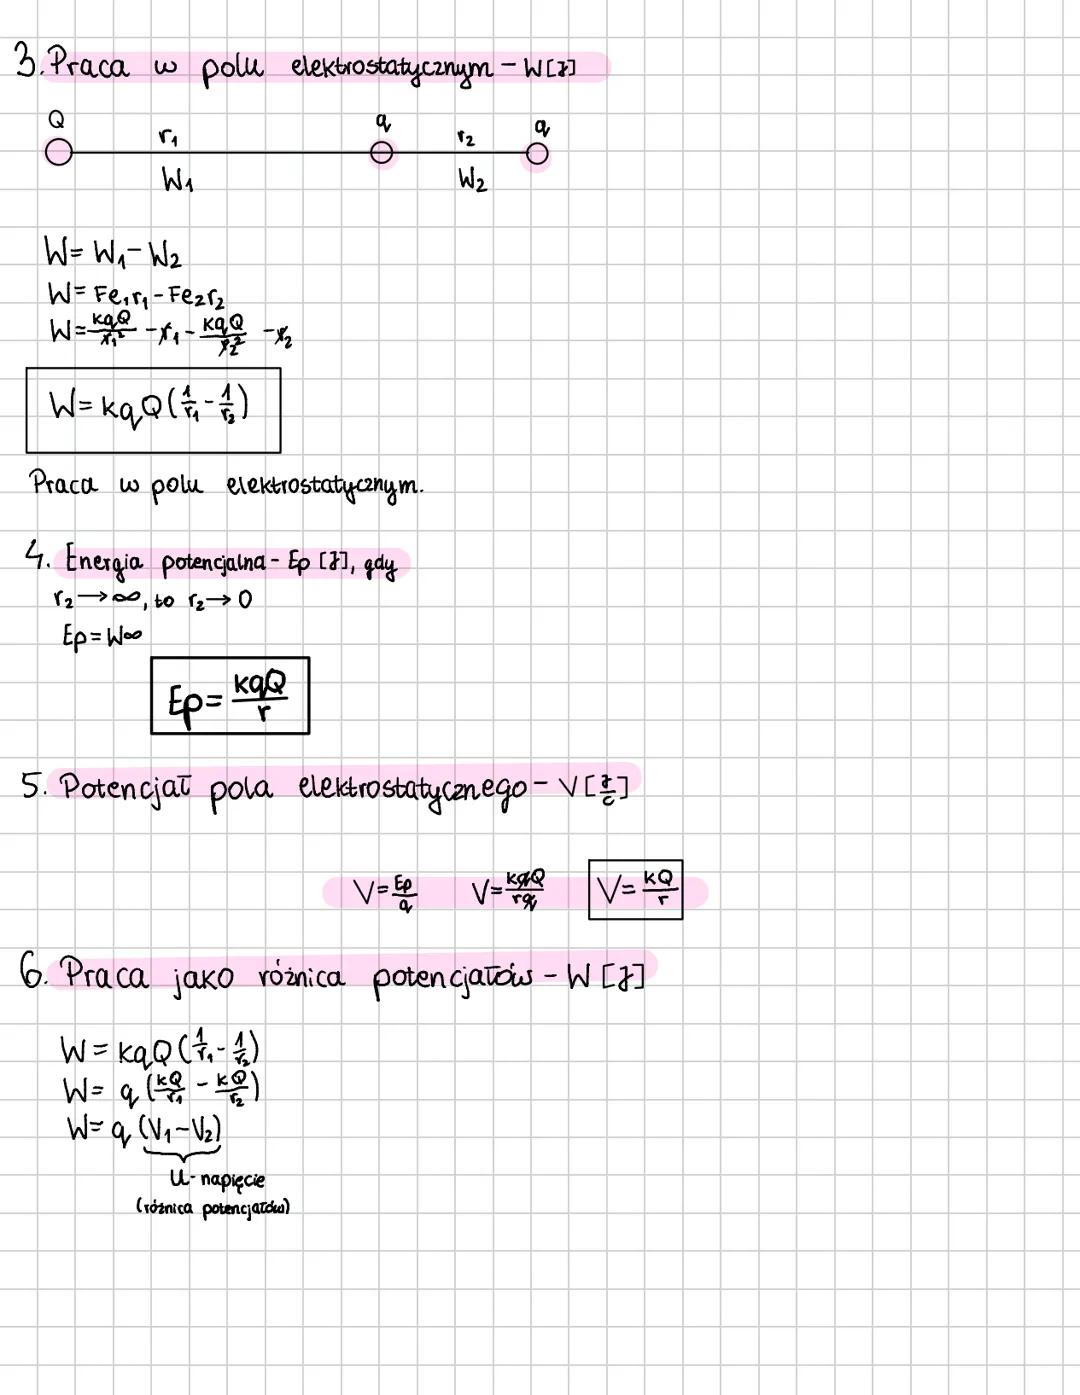 3. Praca w polu elektrostatycznym - W[J]
Q q q
r₁ r₂
W₁ W₂
W = W₁ - W₂
W = Fe₁r₁ - Fe₂r₂
W = kqQ/r₁² - r₁ - kqQ/r₂² - r₂
W = kqQ(1/r₁ - 1/r₂)
Praca w polu elektrostatycznym.
4. Energia potencjalna - Ep [J], gdy
r₂ → ∞, to r₂ → 0
Ep = W∞
Ep = kqQ/r
5. Potencjał pola elektrostatycznego - V [J/C]
V = Ep/q V = kqQ/rq V = kQ/r
6. Praca jako różnica potencjałów - W [J]
W = kqQ(1/r₁ - 1/r₂)
W = q(kQ/r₁ - kQ/r₂)
W = q(V₁ - V₂)
U - napięcie
(różnica potencjałów)